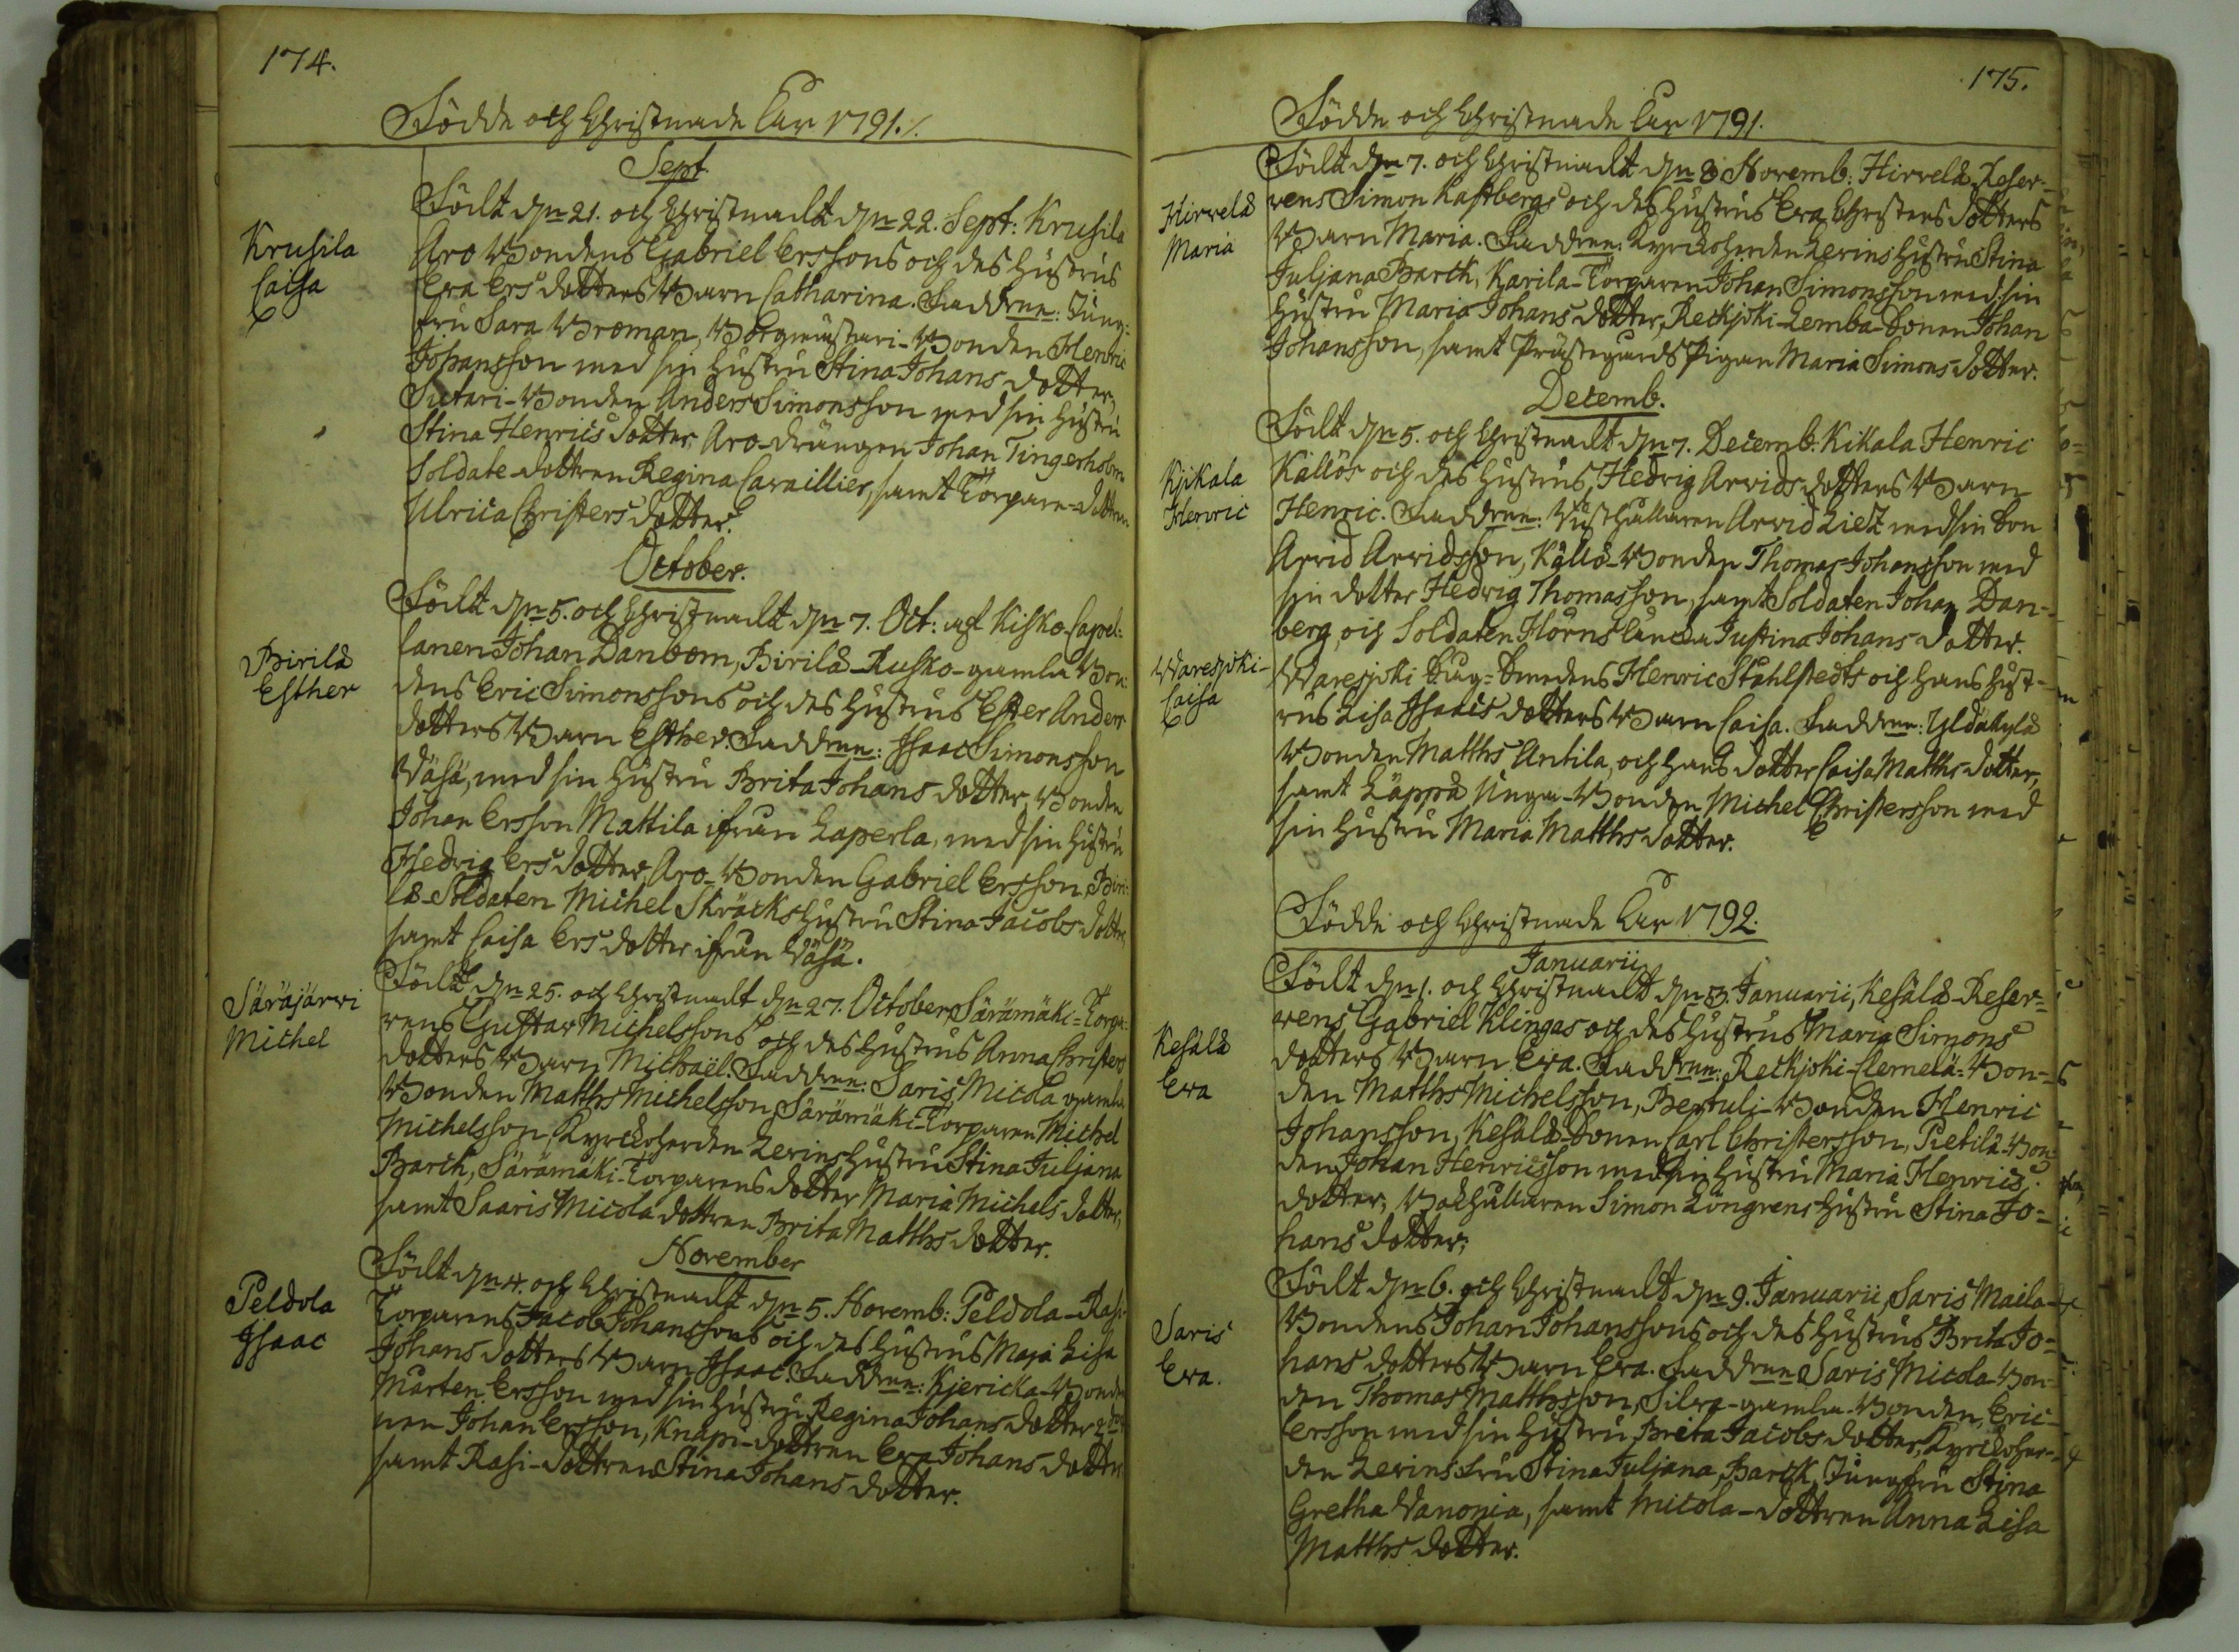 174.
Födde och Christnade Åar 1791.
Sept.
Krusila
Caisa
Födt d n 21. och Christnadt d n 22. Sept: Krusila
Aro Bondens Gabriel Ersssons och des hustrus
Eva Ers dotters Barn Catharina. Faddrne: Jung-
fru Sara Broman, Borgmästari-Bonden Henric
Johansson med sin hustru Stina Johans dotter,
Sutari-Bonden Anders Simonsson med sin hustru
Stina Henrics dotter, Aro-drängen Johan Tingerholm
Soldate-dottren Regina Cavaillier, samt Torpare-dottren
Ulrica Christers dotter.
October.
Pirilä
Esther
Födt d n 5. och Christnadt d n 7. Oct: af Kisko-Capel-
lanen Johan Danbom, Pirilä-Rusko-gamla Bon-
dens Eric Simonssons och des hustrus Ester Anders
dotters Barn Esther. Faddrne: Isaac Simonsson
Wäsä, med sin hustru Brita Johans dotter, Bonden
Johan Ersson Mattila ifrån Laperla, med sin hustru
Hedvig Ers dotter, Aro-Bonden Gabriel Ersson, Piri-
lä-Soldaten Michel Skräcks hustru Stina Jacobs dotter,
samt Caisa Ers dotter ifrån Wäsä.
Säräjärvi
Michel
Födt d n 25. och Christnadt d n 27. October, Särämäki-Torpa-
rens Gustav Michelssons och des hustrus Anna Christers
dotters Barn Michaël. Faddrne: Saris Micola gamla
Bonden Matths Michelsson, Särämäki-Torparen Michel
Michelsson, Kyrckoherden Levins hustru Stina Juljana
Barck, Särämäki-Torparens dotter Maria Michels dotter,
samt Saaris Micola dottren Brita Matths dotter.
November
Peldola
Isaac
Födt d n 4. och Christnadt d n 5. Novemb: Peldola-Rasi-
Torparens Jacob Johanssons och des hustrus Maja Lisa
Johans dotters Barn Isaac. Faddrne: Kjerickla-Bonden
Mårten Ersson med sin hustru Regina Johans dotter
nen Johan Ersson, Knapi-dottren Eva Johans dotter
samt Rasi-dottren Stina Johans dotter.
175.
Födde och Christnade Åar 1791.
Hirvelä
Maria
Födt d n 7. och Christnadt d n 8 Novemb: Hirvelä-Reser-
vens Simon Kastbergs och des hustrus Eva Christers dotters
Barn Maria. Faddrne: Kyrckoherden Levins hustru Stina
Juljana Barck, Karila-Torparen Johan Simonsson med sin
hustru Maria Johans dotter, Reckjoki-Lemba-Sonen Johan
Johansson, samt Prästegårds Pigan Maria Simons dotter.
Decemb.
Kjikala
Henric
Födt d n 5. och Christnadt d n 7. Decemb. Kikala Henric
Källös och des hustrus, Hedvig Arvids dotters Barn
Henric. Faddrne: Rusthållaren Arvid Lietz med sin Son
Arvid Arvidsson, Källö-Bonden Thomas Johansson med
sin dotter Hedvig Thomasson, samt Soldaten Johan Dan-
berg, och Soldaten Hörns Encka Justina Johans dotter.
Waresjoki-
Caisa
Waresjoki Såg-Smedens Henric Stahlstedts och hans hust-
rus Lisa Isaacs dotters Barn Caisa. Faddrne: Yldäkylä
Bonden Matths Antila, och hans dotter Caisa Matths dotter,
samt Läppä Unga-Bonden Michel Christersson med
sin hustru Maria Matths dotter.
Födde och Christnade Åar 1792.
Januarii
Kesälä
Eva
Födt d n 1. och Christnadt d n 3. Januarii, Kesälä-Reser-
vens Gabriel Klingas och des hustrus Maria Simons
dotters Barn Eva. Faddrne: Reckjoki-Clemelä-Bon-
den Matths Michelsson, Pertuli-Bonden Henric
Johansson, Kesälä-Sonen Carl Christersson, Pietilä-Bon-
den Johan Henricsson med sin hustru Maria Henrics
dotter, Bokhållaren Simon Löngrens hustru Stina Jo-
hans dotter;
Saris
Eva.
Födt d n 6. och Christnadt d n 9. Januarii, Saris Maila-
Bondens Johan Johanssons och des hustrus Brita Jo-
hans dotters Barn Eva. Faddrne Saris Micola-Bon-
den Thomas Matthsson, Silva-gamla-Bonden, Eric
Ersson med sin hustru, Brita Jacobs dotter, Kyrckoher-
den Levins Fru Stina Juljana, Barck, Jungfru Stina
Gretha Wanonia, samt Micola-dottren Anna Lisa
Matths dotter.